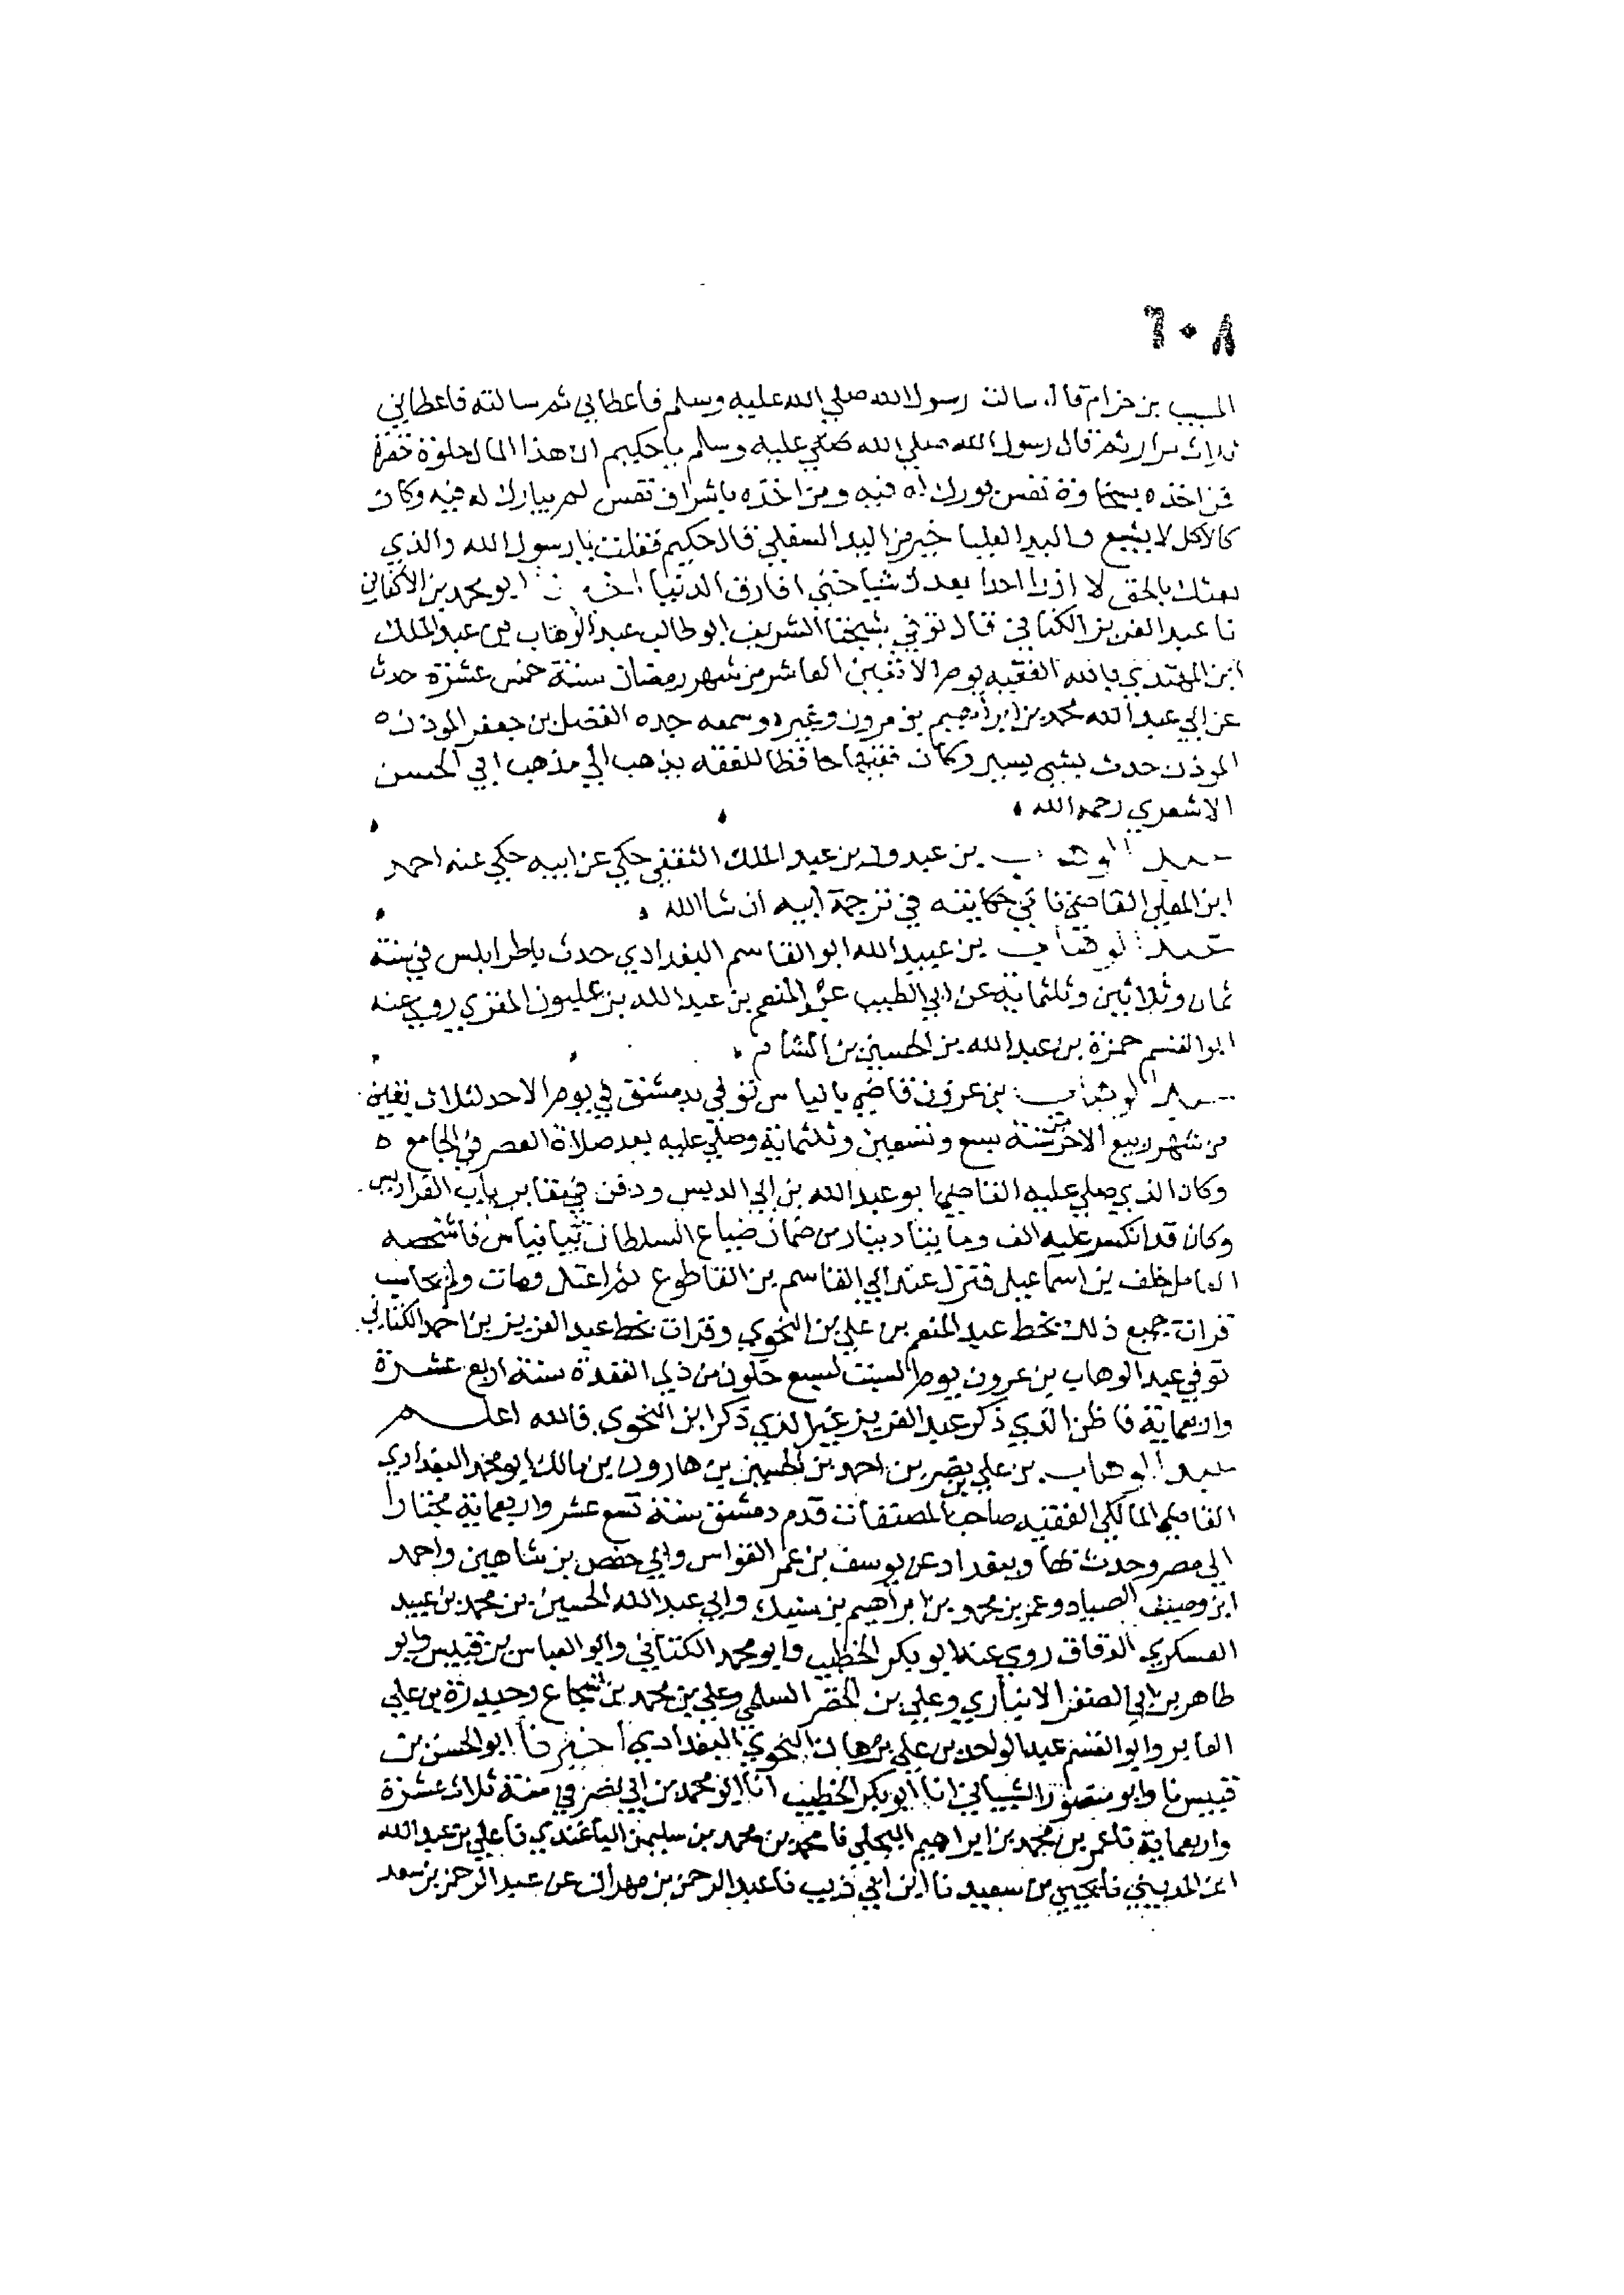 ٦٠٨
المسيب بن حزام قال سالت رسول الله صلي الله عليه وسلم فاعطاني ثم سالته فاعطاني
ثلاث مرار ثم قال رسول الله صلي الله عليه وسلم يا حكيم ان هذا المال حلوة خضرة
فمن اخذه بسخاوة نفس بورك له فيه ومن اخذه باشراف نفس لم يبارك له فيه وكان
كالاكل لا يشبع واليد العليا خير من اليد السفلي قال حكيم فقلت يا رسول الله والذي
بعثك بالحق لا ارزا احدا بعدك شيا حتي افارق الدنيا ابو محمد بن الاكفاني
نا عبد العزيز الكتاني قال توفي شيخنا الشريف ابو طالب عبد الوهاب بن عبد الملك
ابن المهتدي بالله الفقيه يوم الاثنين العاشر من شهر رمضان سنة خمس عشرة حدث
عن ابي عبد الله محمد بن ابراهيم بن مرون وغيره وسمعه جده الفضل بن جعفر الموذن ه
الموذن حدث بشي يسير وكان فقيها حافظا للفقه يذهب الي مذهب ابي الحسن
الاشعري رحمه الله
عبد الوهاب بن عبدون بن عبد الملك الثقفي حكي عن ابيه حكي عنه احمد
ابن المعلي القاضي تاتي حكايته في ترجمة ابيه ان شا الله
عبد الوهاب بن عبيد الله ابو القاسم البغدادي حدث باطرابلس في سنة
ثمان وثلاثين وثلثماية عن ابي الطيب عبد المنعم بن عبد الله بن غليون المقري روي عنه
ابو القسم حمزة بن عبد الله بن الحسين بن الشام
عبد الوهاب بن عزون قاضي بانياس توفي بدمشق في يوم الاحد لثلاث بقين
من شهر ربيع الاخر سنة تسع وتسعين وثلثماية وصلي عليه بعد صلاة العصر في الجامع ه
وكان الذي صلي عليه القاضي ابو عبد الله بن ابي الدبس ودفن في مقابر باب الفراديس
وكان قد انكسر عليه الف وماينتا دينار من ضمان ضياع السلطان ببانياس فاشخصه
العامل خلف بن اسماعيل فنزل عند ابي القاسم بن القاطوع ثم اعتل ومات ولم يحاسب
قرات جميع ذلك بخط عبد المنعم بن علي بن النحوي وقرات بخط عبد العزيز بن احمد الكتاني
توفي عبد الوهاب بن عزون يوم السبت لسبع خلون من ذي القعدة سنة اربع عشرة
واربعماية فاظن الذي ذكر عبد العزيز غير الذي ذكر ابن النحوي فالله اعلم
عبد الوهاب بن علي بن نصر بن احمد بن الحسين بن هارون بن مالك ابو محمد البغدادي
القاضي المالكي الفقيه صاحب المصنفات قدم دمشق سنة تسع عشر واربعماية مجتازا
الي مصر وحدث بها وببغداد عن يوسف بن عمر القواس وابي حفص بن شاهين واحمد
ابن وصيف الصياد وعمر بن محمد بن ابراهيم بن سبنك وابي عبد الله الحسين بن محمد بن عبيد
العسكري الدقاق روي عنه ابو بكر الخطيب وابو محمد الكتاني وابو العباس بن قبيس وابو
طاهر بن ابي الصقر الانباري وعلي بن الخضر السلمي وعلي بن محمد بن شجاع وحيدرة بن علي
العابر وابو القسم عبد الواحد بن علي برهان النحوي البغدادي اخبرنا ابو الحسن بن
قبيس نا وابو منصور الشيباني انا ابو بكر الخطيب انا ابو محمد بن ابي نصر في سنة ثلاث عشرة
واربعماية نا عمر بن محمد بن ابراهيم البجلي نا محمد بن محمد بن سليمن الباغندي نا علي بن عبد الله
ابن المديني نا يحيي بن سعيد نا ابن ابي ذيب نا عبد الرحمن بن مهران عن عبد الرحمن بن سعد